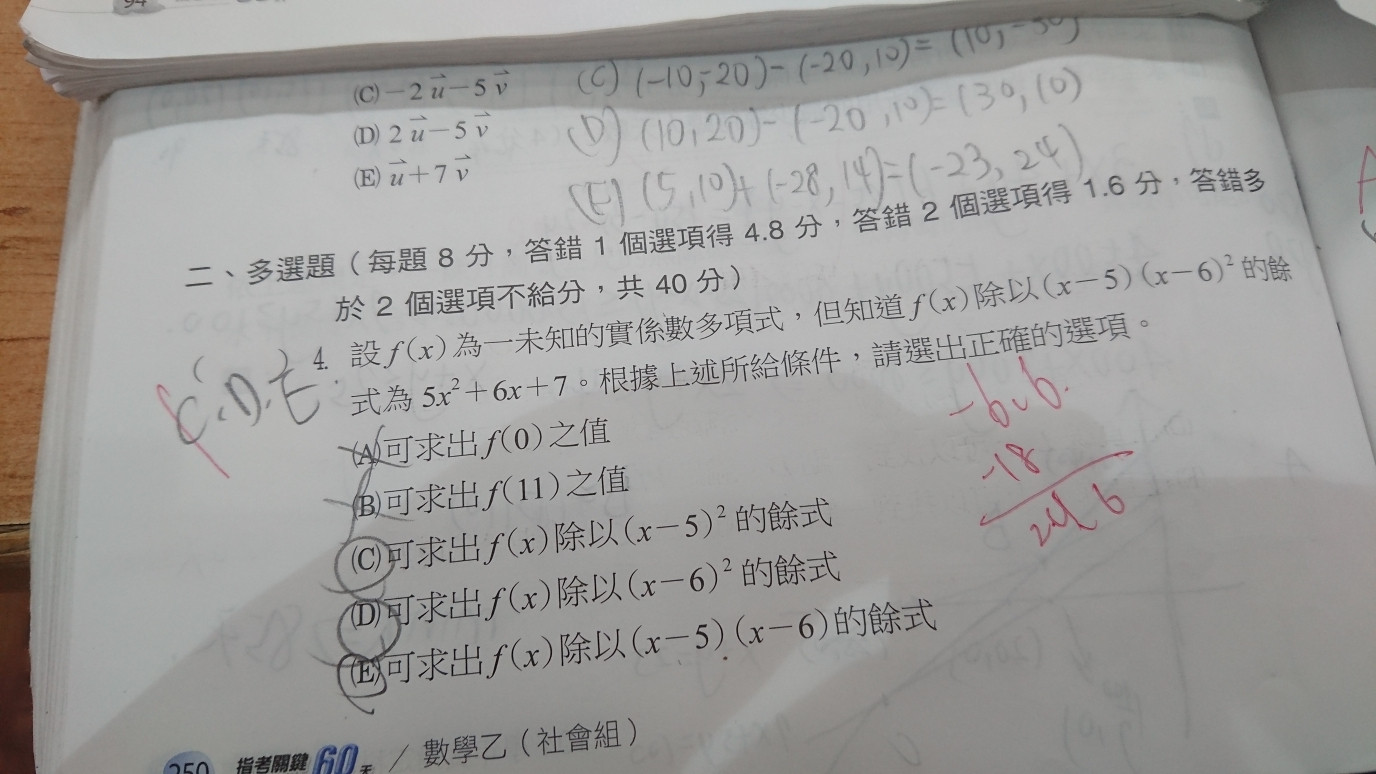 94
(C) −2u⃗−5v⃗ (C) (-10,-20)-(-20,10)=(10,-30)
(D) 2u⃗−5v⃗ (D) (10,20)-(-20,10)=(30,10)
(E) u⃗+7v⃗ (E) (5,10)+(-28,14)=(-23,24)
二、多選題（每題 8 分，答錯 1 個選項得 4.8 分，答錯 2 個選項得 1.6 分，答錯多
於 2 個選項不給分，共 40 分）
( ) 4. 設 f(x) 為一未知的實係數多項式，但知道 f(x) 除以 (x−5)(x−6)² 的餘
C.D.E 式為 5x²+6x+7。根據上述所給條件，請選出正確的選項。
(A) 可求出 f(0) 之值
(B) 可求出 f(11) 之值
(C) 可求出 f(x) 除以 (x−5)² 的餘式
(D) 可求出 f(x) 除以 (x−6)² 的餘式
(E) 可求出 f(x) 除以 (x−5)(x−6) 的餘式
-18
250 指考關鍵60天 / 數學乙（社會組）